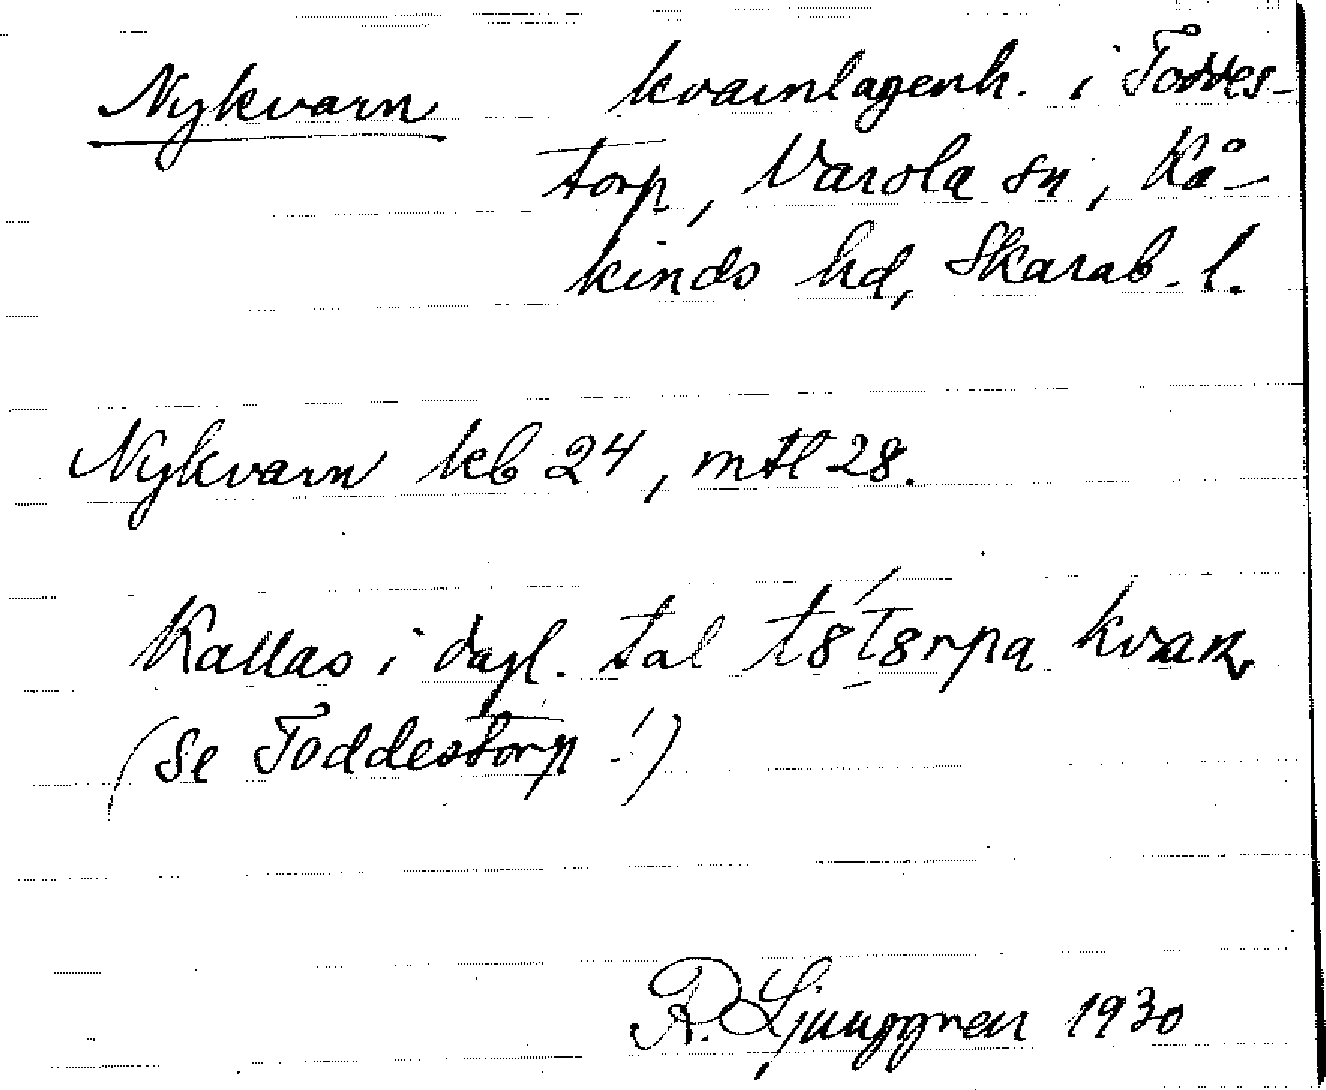 Nykvarn kvarnlägenh. i Toddes-
torp, Varola sn, Kå-
kinds hd, Skarab. l.
Nykvarn kb 24, mtl 28.
Kallas i dagl. tal kvarn
(se Toddestorp!)
R. Ljunggren 1930